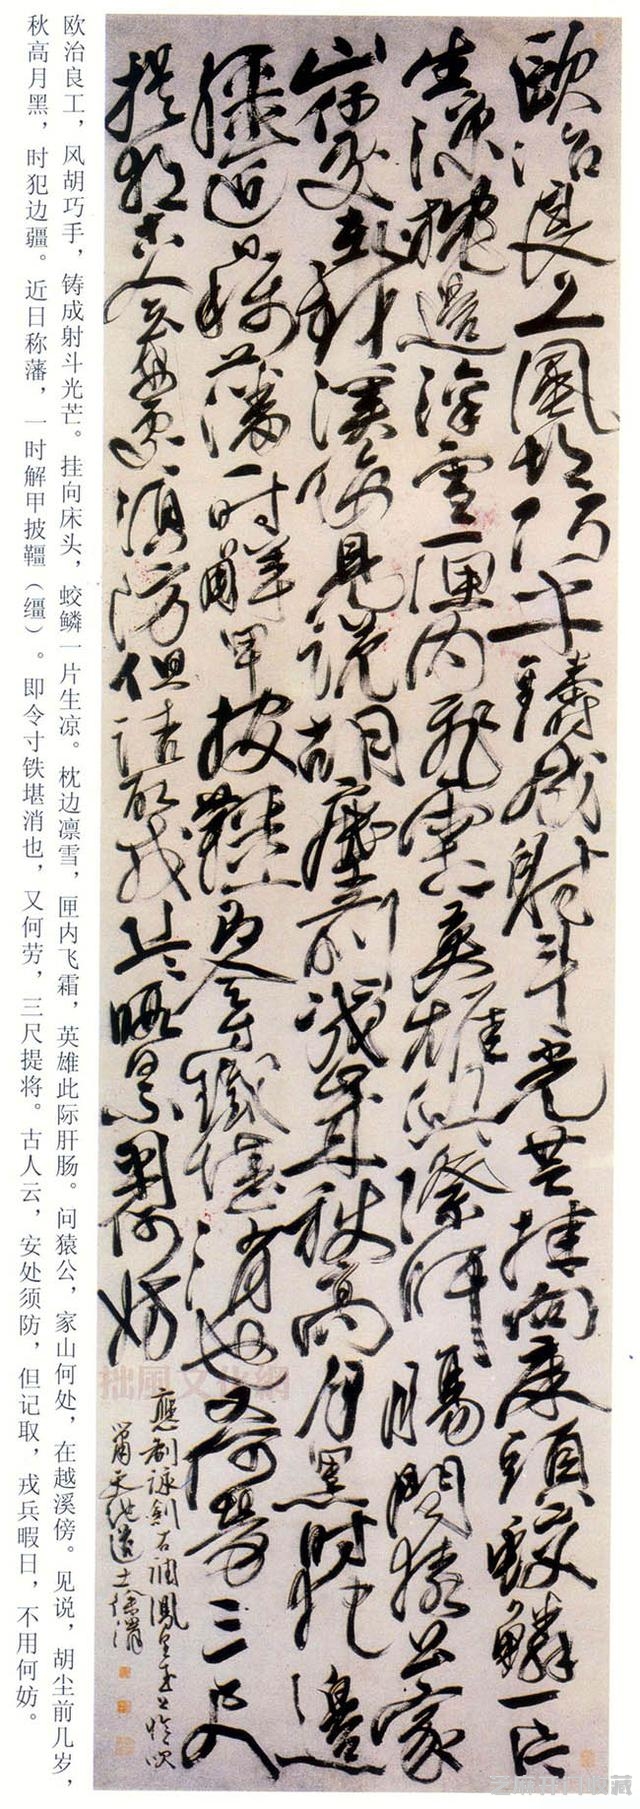 歐冶良工風胡巧手鑄成射斗光芒挂向床頭蛟鱗一片
生涼枕邊凜雪匣内飛霜英雄此際肝腸問猿公家
山何處在越溪傍見說胡塵前幾歲秋高月黑時犯邊
疆近日稱藩一時解甲披韁即令寸鐵堪消也又何勞三尺
提將古人云安處須防但取戎兵暇何妨
應制詠劍右調鳳凰臺上憶吹
簫天池道士徐渭
欧治良工，风胡巧手，铸成射斗光芒。挂向床头，蛟鳞一片生凉。枕边凛雪，匣内飞霜，英雄此际肝肠。问猿公，家山何处，在越溪傍。见说，胡尘前几岁，
秋高月黑，时犯边疆。近日称藩，一时解甲披韁（缰）。即令寸铁堪消也，又何劳，三尺提将。古人云，安处须防，但记取，戎兵暇日，不用何妨。
拙風文化網
芝麻开门收藏